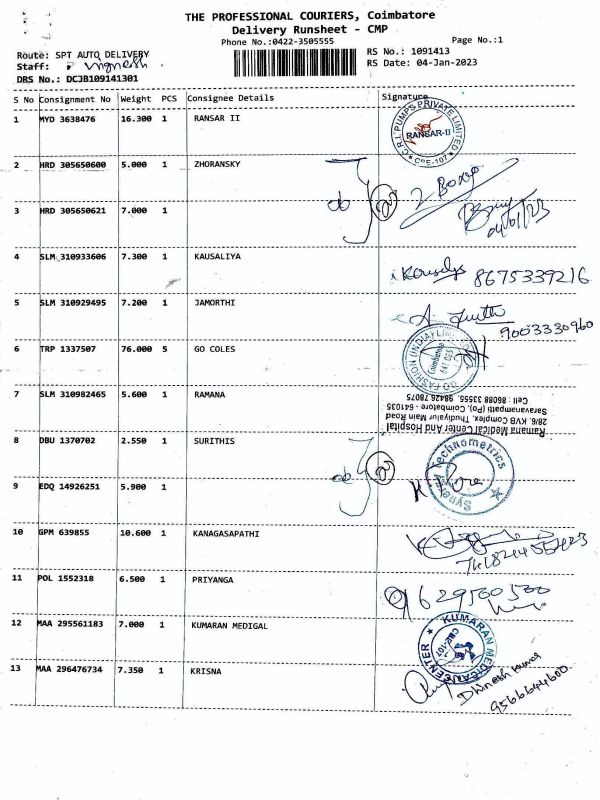 THE PROFESSIONAL COURIERS, Coimbatore
Delivery Runsheet - CMP
Phone No.:0422-3505555 Page No.:1
Route: SPT AUTO DELIVERY RS No.: 1091413
Staff: Vignesh RS Date: 04-Jan-2023
DRS No.: DCJB109141301
S No Consignment No Weight PCS Consignee Details Signature
1 MYD 3638476 16.300 1 RANSAR II
C.R.I. PUMPS PRIVATE LIMITED
RANSAR-II
CBE-107
2 HRD 305650600 5.000 1 ZHORANSKY
2 Boxes
3 HRD 305650621 7.000 1
04/01/23
4 SLM 310933606 7.300 1 KAUSALIYA
8675339216
5 SLM 310929495 7.200 1 JAMORTHI
9003330960
6 TRP 1337507 76.000 5 GO COLES
GO FASHION (INDIA) LIMITED
Coimbatore
641 035
7 SLM 310982465 5.600 1 RAMANA
Ramana Medical Center And Hospital
28/6, KVB Complex, Thudiyalur Main Road
Saravanampatti (Po), Coimbatore - 641035
Cell : 86088 33555, 98426 78075
8 DBU 1370702 2.550 1 SURITHIS
Technometrics
9 EDQ 14926251 5.900 1
10 GPM 639855 10.600 1 KANAGASAPATHI
11 POL 1552318 6.500 1 PRIYANGA
9629500500
12 MAA 295561183 7.000 1 KUMARAN MEDIGAL
KUMARAN MEDICAL CENTER
13 MAA 296476734 7.350 1 KRISNA
Dhinesh Kumar
9566644600